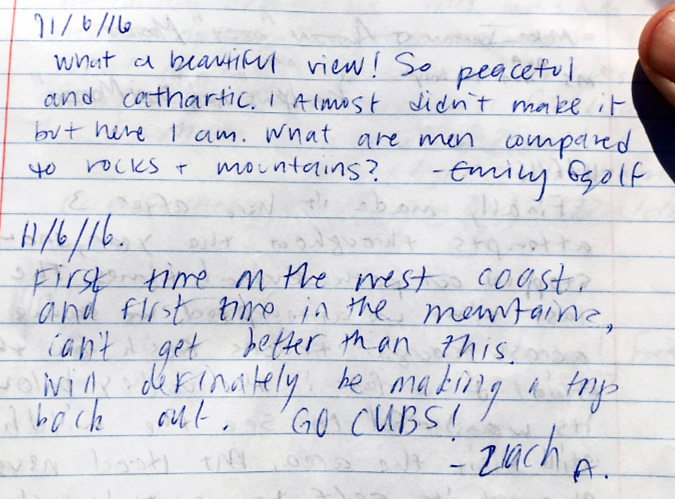 11/6/16
What a beautiful view! So peaceful
and cathartic. I Almost didn't make it
but here I am. What are men compared
to rocks + mountains? -Emily Egolf
11/6/16.
First time on the west coast.
and first time in the mountains,
can't get better than this.
will definately be making a trip
back out. GO CUBS!
- Zach A.